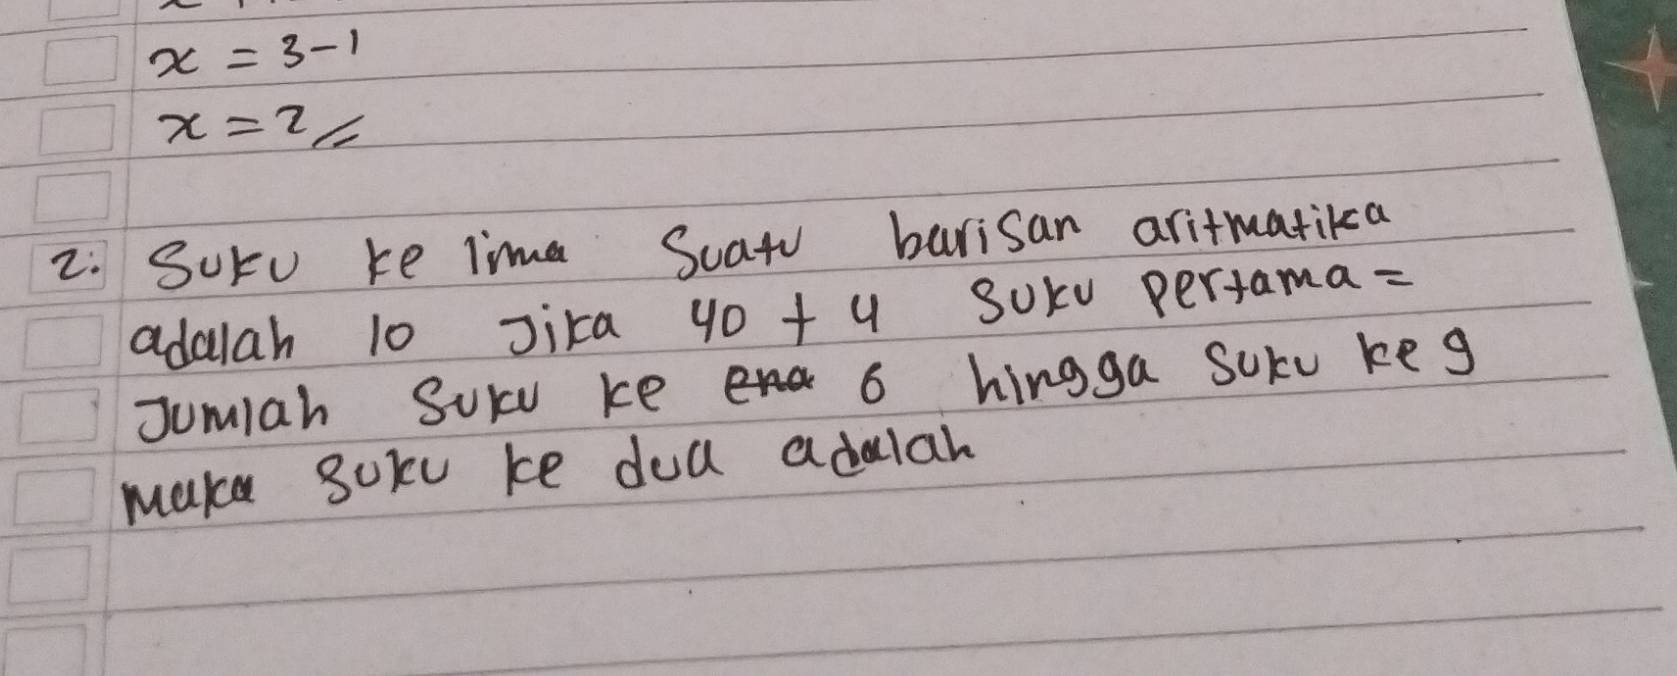 x = 3-1
x = 2
2. Suku ke lima Suatu barisan aritmatika
adalah 10 Jika 40 + 4 suku pertama =
Jumlah suku ke 6 hingga suku ke 9
maka suku ke dua adalah